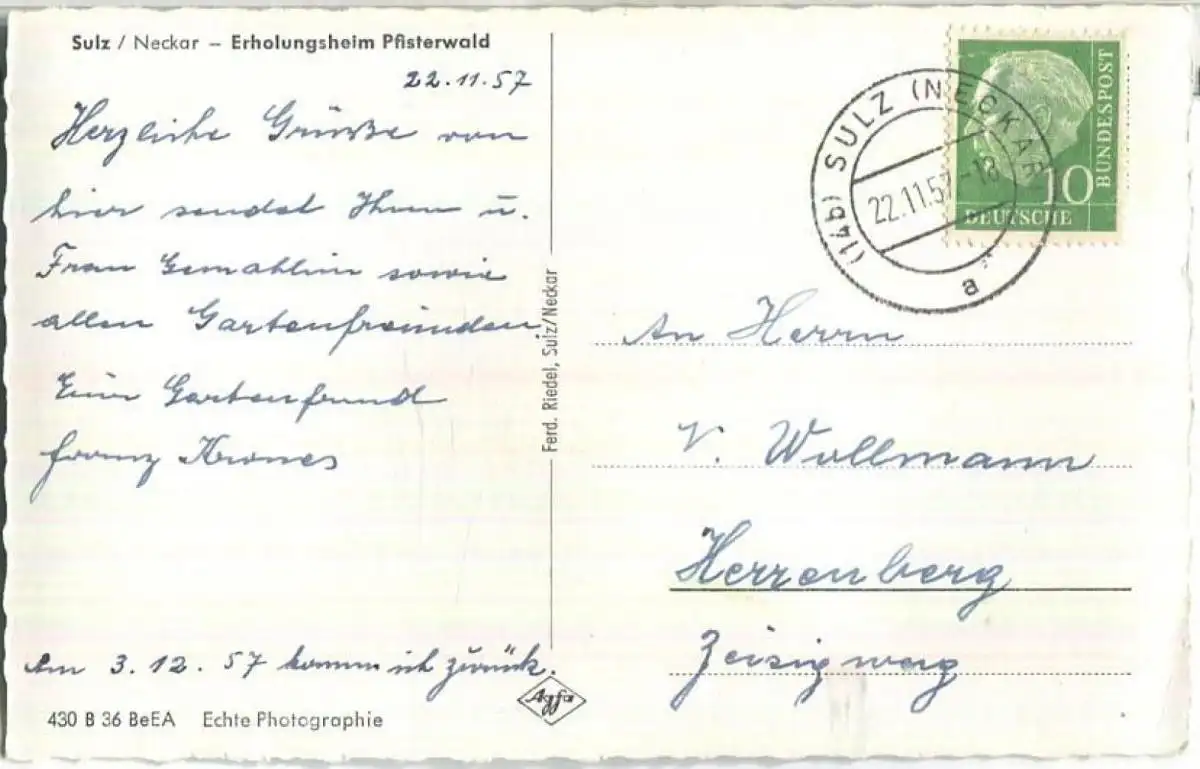 Sulz / Neckar – Erholungsheim Pfisterwald
22.11.57
Herzliche Grüsse von
hier sendet Ihnen u.
Frau Gemahlin sowie
allen Gartenfreunden
Euer Gartenfreund
Franz Krones
Am 3.12.57 komme ich zurück.
430 B 36 BeEA Echte Photographie
Ferd. Riedel, Sulz/Neckar
Agfa
(14b) SULZ (NECKAR)
22.11.57-18
a
BUNDESPOST
10
DEUTSCHE
An Herrn
V. Wollmann
Herrenberg
Zeisigweg